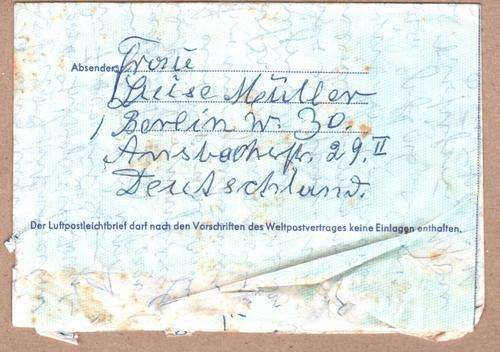 Absender: Frau
Luise Müller
Berlin W. 30.
Ansbacherstr. 29. II
Deutschland.
Der Luftpostleichtbrief darf nach den Vorschriften des Weltpostvertrages keine Einlagen enthalten.